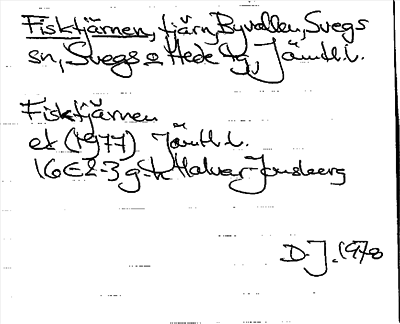 Fisktjärnen, tjärn, Byvallen, Svegs
sn, Svegs o Hede tg, Jämtl.l.
Fisktjärnen
ek (1977) Jämtl.l.
16E 2-3 g-h
D.J. 1978